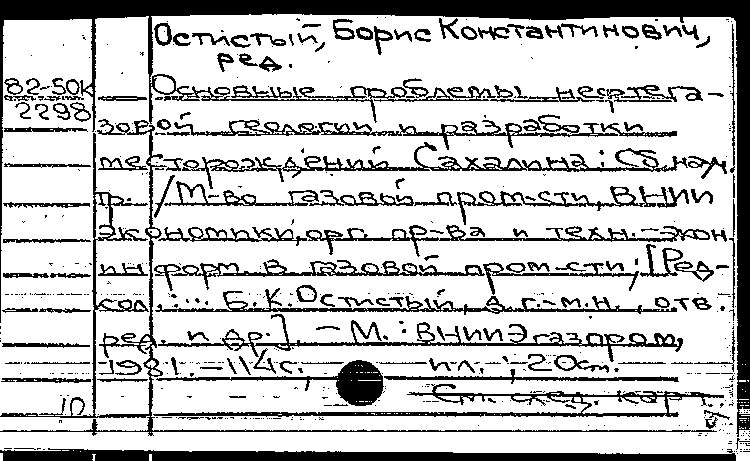 Остистый, Борис Константинович,
ред.
82-50к
2298
Основные проблемы нефтега-
зовой геологии и разработки
месторождений Сахалина: Сб. науч.
тр. /М-во газовой пром-сти, ВНИИ
экономики, орг. пр-ва и техн.-экон.
информ. в газовой пром-сти; [Ред-
кол.: ... Б.К. Остистый, д. г.-м.н., отв.
ред. и др.]. - М.: ВНИИЭгазпром,
1981. - 114 с. ил.; 20 см.
См. след. карт.
10